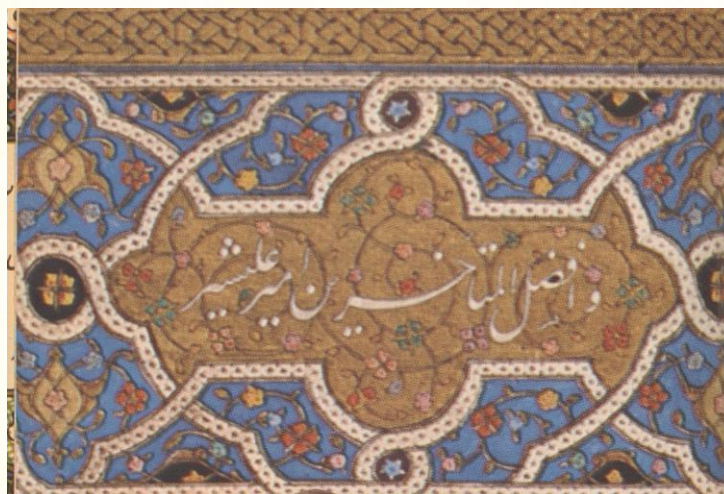 و افضل المتاخرین امیر علیشیر